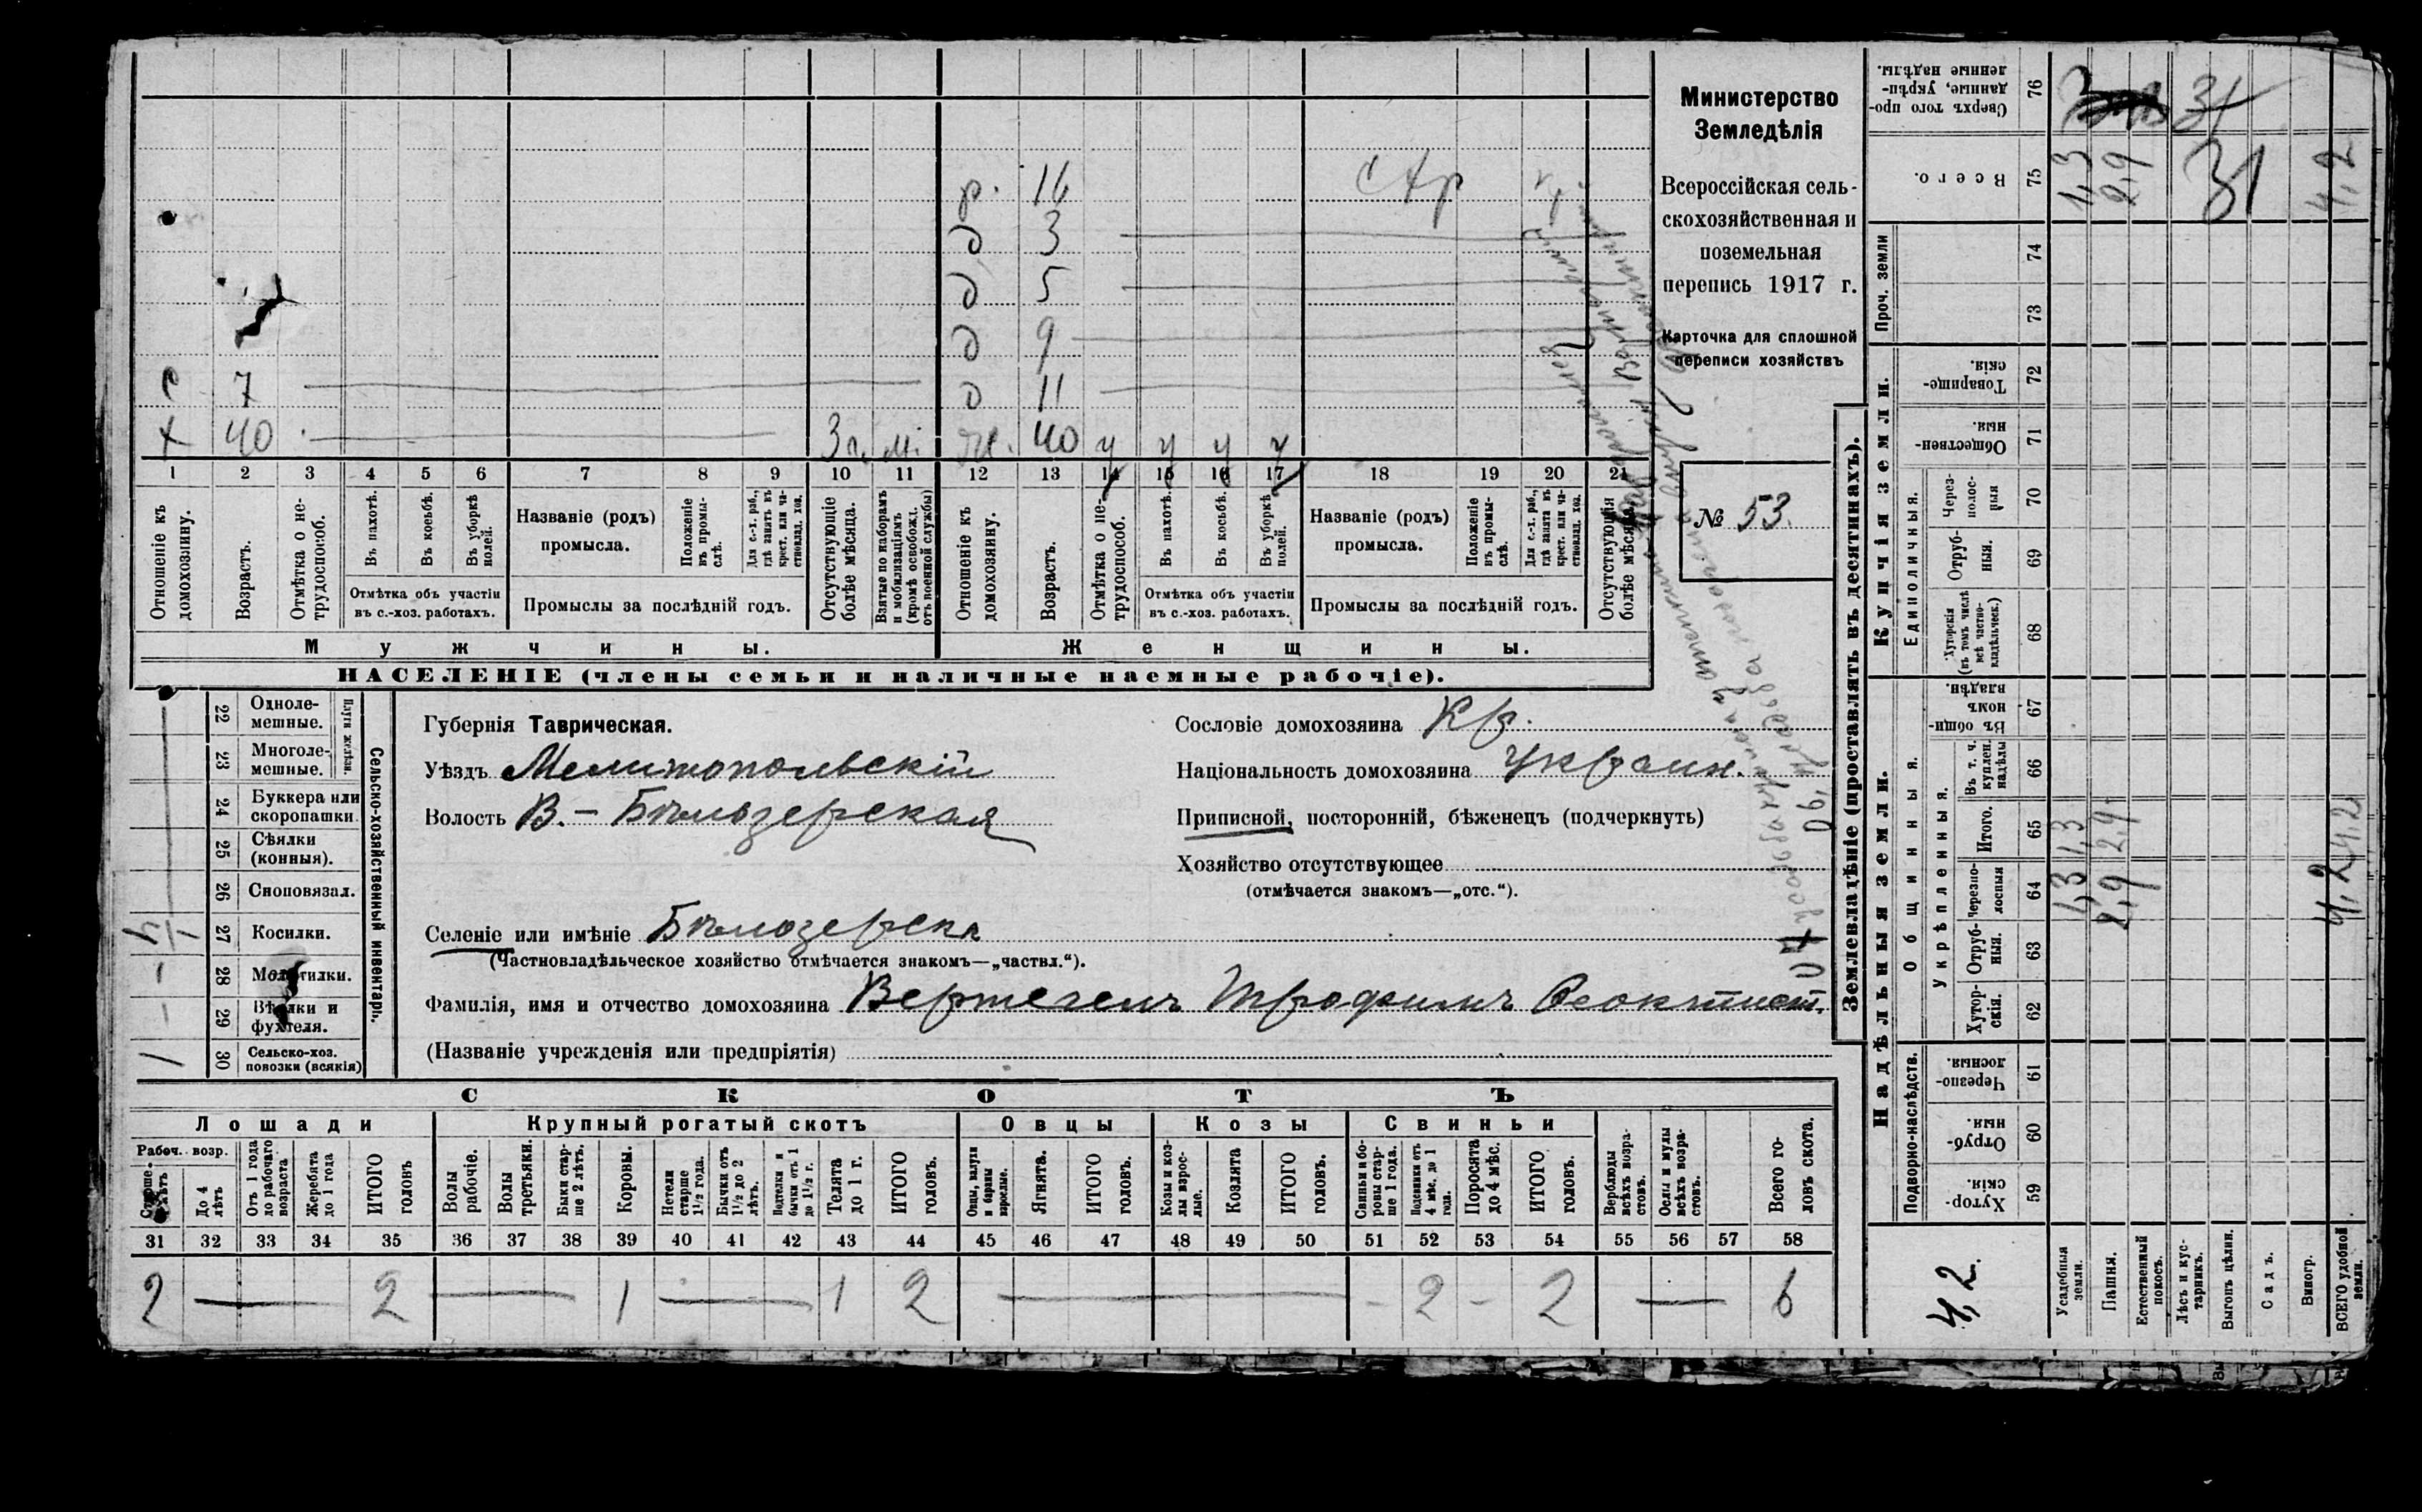 Министерство
Земледѣлія
Всероссійская сель-
скохозяйственная и
поземельная
перепись 1917 г.
Карточка для сплошной
переписи хозяйствъ
№ 53.
р. 16 стр
д 3
д 5
д 9
с 7 д 11
х 40 3 г. м. ж. 40 у у у у
1 2 3 4 5 6 7 8 9 10 11 12 13 14 15 16 17 18 19 20 21
Отношеніе къ домохозяину.
Возрастъ.
Отмѣтка о не-трудоспособ.
Въ пахотѣ.
Въ косьбѣ.
Въ уборкѣ полей.
Отмѣтка объ участіи
въ с.-хоз. работахъ.
Названіе (родъ)
промысла.
Положеніе въ промы-слѣ.
Для с.-х. раб., гдѣ занятъ въ крест. или ча-стновлад. хоз.
Промыслы за послѣдній годъ.
Отсутствующіе болѣе мѣсяца.
Взятые по наборамъ и мобилизаціямъ (кромѣ освобожд. отъ военной службы)
Отношеніе къ домохозяину.
Возрастъ.
Отмѣтка о не-трудоспособ.
Въ пахотѣ.
Въ косьбѣ.
Въ уборкѣ полей.
Отмѣтка объ участіи
въ с.-хоз. работахъ.
Названіе (родъ)
промысла.
Положеніе въ промы-слѣ.
Для с.-х. раб., гдѣ занята въ крест. или ча-стновлад. хоз.
Промыслы за послѣдній годъ.
Отсутствующія болѣе мѣсяца.
Мужчины. Женщины.
НАСЕЛЕНІЕ (члены семьи и наличные наемные рабочіе).
Сельско-хозяйственный инвентарь.
Плуги желѣзн.
22 Одноле-мешные.
23 Многоле-мешные.
24 Буккера или скоропашки
25 Сѣялки (конныя).
26 Сноповязал.
27 Косилки.
28 Молотилки.
29 Вѣялки и фухтеля.
30 Сельско-хоз. повозки (всякія) 1
Губернія Таврическая.
Уѣздъ Мелитопольскій
Волость В.-Бѣлозерская
Селеніе или имѣніе Бѣлозерка
(Частновладѣльческое хозяйство отмѣчается знакомъ—„частвл.“).
Фамилія, имя и отчество домохозяина Вертегелъ Трофимъ Феоктист.
(Названіе учрежденія или предпріятія)
Сословіе домохозяина Кр.
Національность домохозяина Украин.
Приписной, посторонній, бѣженецъ (подчеркнуть)
Хозяйство отсутствующее
(отмѣчается знакомъ—„отс.“).
СКОТЪ
Лошади Крупный рогатый скотъ Овцы Козы Свиньи
Рабоч. возр.
До 4 лѣтъ
Отъ 1 года до рабочаго возраста
Жеребята до 1 года
ИТОГО головъ
Волы рабочіе.
Волы третьяки.
Быки стар-ше 2 лѣтъ.
Коровы.
Нетели старше 1½ года.
Бычки отъ 1½ до 2 лѣтъ.
Подтелки и бычки отъ 1 до 1½ г.
Телята до 1 г.
ИТОГО головъ.
Овцы, валухи и бараны взрослые.
Ягнята.
ИТОГО головъ.
Козы и коз-лы взрос-лые.
Козлята
ИТОГО головъ.
Свиньи и бо-ровы стар-ше 1 года.
Подсвинки отъ 4 мѣс. до 1 года.
Поросята до 4 мѣс.
ИТОГО головъ.
Верблюды всѣхъ возра-стовъ.
Ослы и мулы всѣхъ возра-стовъ.
Всего го-ловъ скота.
31 32 33 34 35 36 37 38 39 40 41 42 43 44 45 46 47 48 49 50 51 52 53 54 55 56 57 58
2 — 2 — 1 — 1 2 — - 2 - 2 — 6
Землевладѣніе (проставлять въ десятинахъ).
Купчія земли.
Надѣльныя земли.
Проч. земли
Единоличныя.
Общинныя.
Укрѣпленныя.
Подворно-наслѣдств.
76 Сверхъ того про-данные, укрѣп-ленные надѣлы.
75 Всего. 1,3 2,9 31 4,2
74
73
72 Товарище-скія.
71 Обществен-ныя.
70 Через-полос-ныя
69 Отруб-ныя.
68 Хуторскія (въ томъ числѣ всѣ частно-владѣльческ.)
67 Въ общи-номъ владѣн.
66 Въ т. ч. куплен. надѣлы
65 Итого. 1,3 2,9 4,2
64 Черезпо-лосныя 1,3 2,9 4,2
63 Отруб-ныя.
62 Хутор-скія.
61 Черезпо-лосныя.
60 Отруб-ныя.
59 Хутор-скія.
4,2.
Усадебныя земли.
Пашня.
Естественный покосъ.
Лѣсъ и кус-тарникъ.
Выгонъ цѣлин.
Садъ.
Виногр.
ВСЕГО удобной земли.